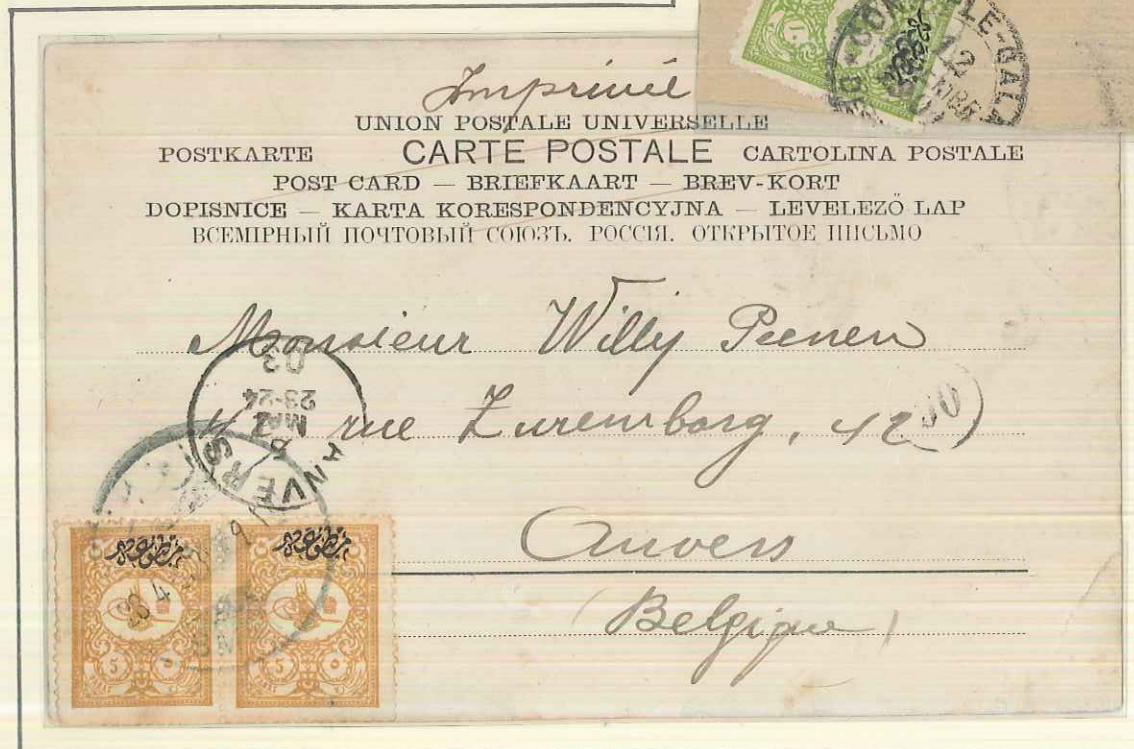 Imprimé
UNION POSTALE UNIVERSELLE
POSTKARTE CARTE POSTALE CARTOLINA POSTALE
POST CARD — BRIEFKAART — BREV-KORT
DOPISNICE — KARTA KORESPONDENCYJNA — LEVELEZÖ LAP
ВСЕМІРНЫЙ ПОЧТОВЫЙ СОЮЗЪ. РОССІЯ. ОТКРЫТОЕ ПИСЬМО
Monsieur Willy Peenen
rue Luxemborg, 12
Anvers
Belgique
ANVERS
5 MAI
23-24
03
5 ٥
5 ٥
12